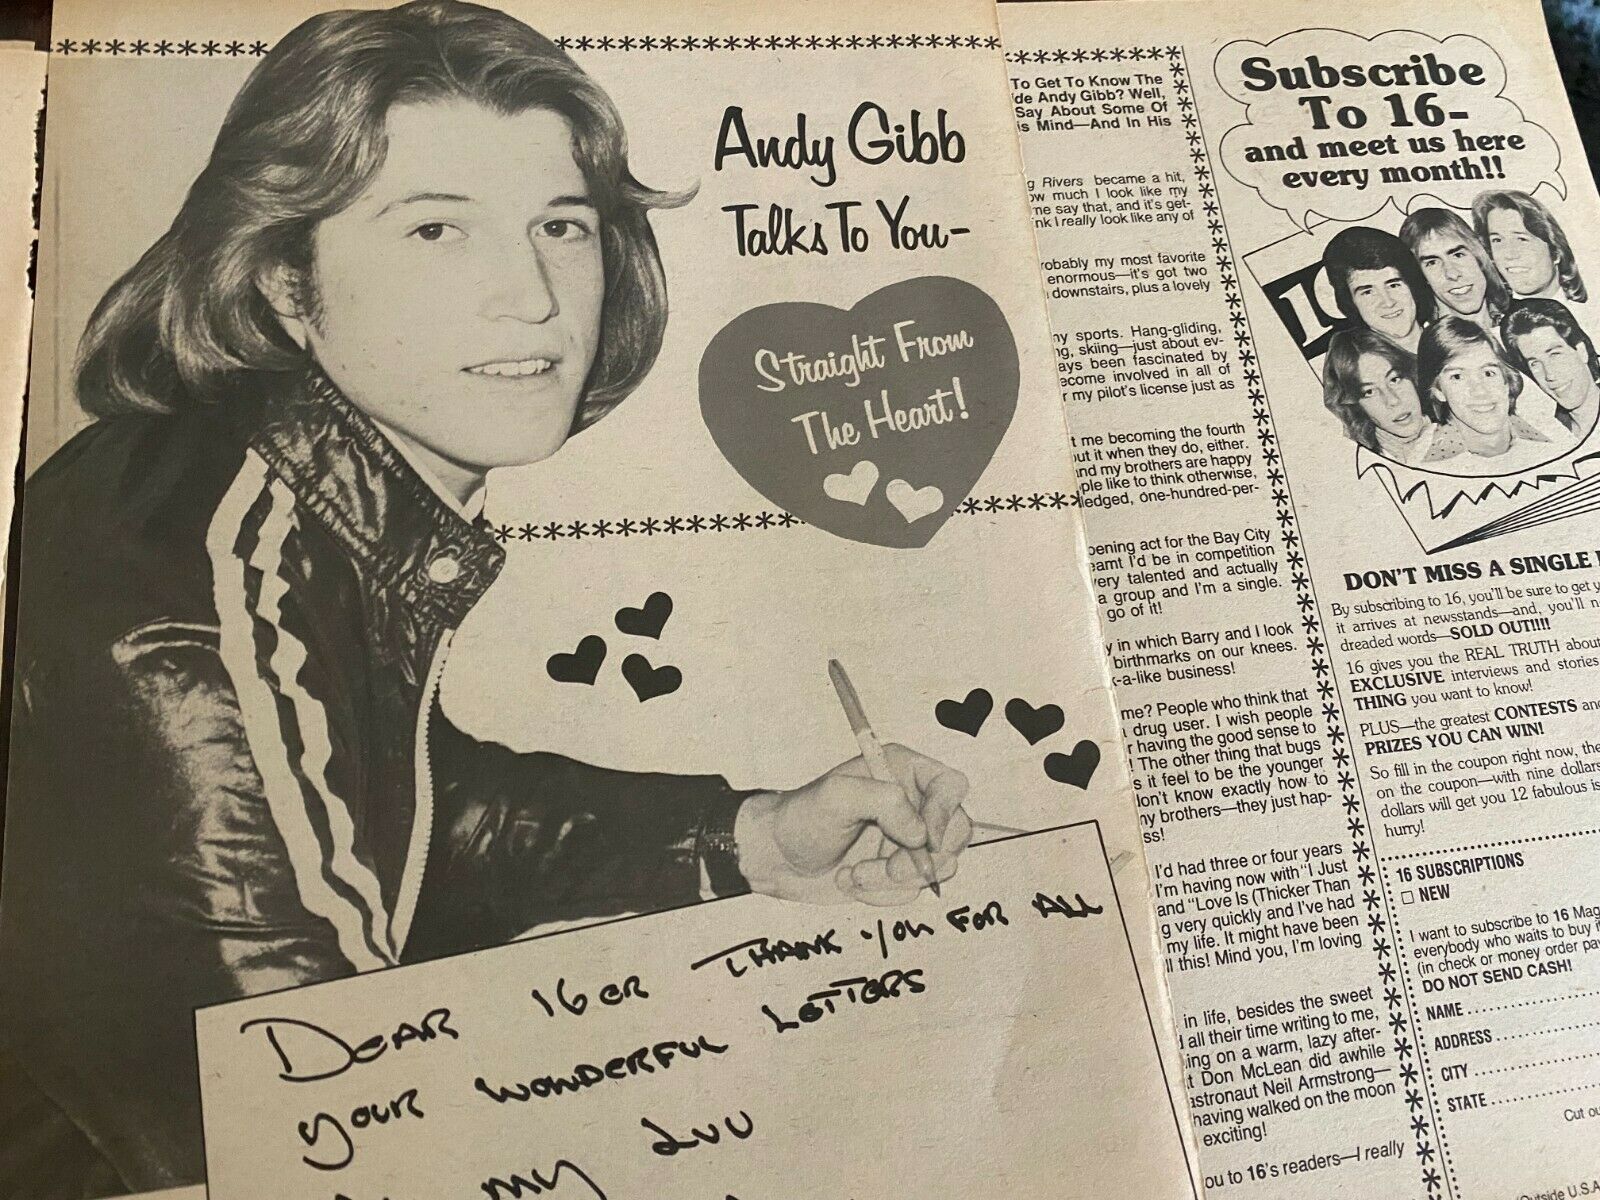 Andy Gibb
Talks To You-
Straight From
The Heart!
DEAR 16ER THANK YOU FOR ALL
YOUR WONDERFUL LETTERS
MY LUV
To Get To Know The
de Andy Gibb? Well,
Say About Some Of
is Mind—And In His
g Rivers became a hit,
ow much I look like my
me say that, and it's get-
nk I really look like any of
robably my most favorite
enormous—it's got two
downstairs, plus a lovely
ny sports. Hang-gliding,
ng, skiing—just about ev-
ays been fascinated by
ecome involved in all of
r my pilot's license just as
t me becoming the fourth
out it when they do, either.
and my brothers are happy
ple like to think otherwise,
ledged, one-hundred-per-
pening act for the Bay City
eamt I'd be in competition
very talented and actually
a group and I'm a single.
go of it!
y in which Barry and I look
birthmarks on our knees.
k-a-like business!
me? People who think that
drug user. I wish people
r having the good sense to
! The other thing that bugs
s it feel to be the younger
don't know exactly how to
ny brothers—they just hap-
ss!
I'd had three or four years
I'm having now with "I Just
and "Love Is (Thicker Than
g very quickly and I've had
my life. It might have been
ll this! Mind you, I'm loving
in life, besides the sweet
d all their time writing to me,
ing on a warm, lazy after-
t Don McLean did awhile
astronaut Neil Armstrong—
having walked on the moon
exciting!
ou to 16's readers—I really
Subscribe
To 16-
and meet us here
every month!!
DON'T MISS A SINGLE
By subscribing to 16, you'll be sure to get y
it arrives at newsstands—and, you'll n
dreaded words—SOLD OUT!!!!
16 gives you the REAL TRUTH about
EXCLUSIVE interviews and stories
THING you want to know!
PLUS—the greatest CONTESTS and
PRIZES YOU CAN WIN!
So fill in the coupon right now, the
on the coupon—with nine dollars
dollars will get you 12 fabulous is
hurry!
16 SUBSCRIPTIONS
☐ NEW
I want to subscribe to 16 Mag
everybody who waits to buy i
(in check or money order pa
DO NOT SEND CASH!
NAME
ADDRESS
CITY
STATE
Cut ou
(Outside U.S.A